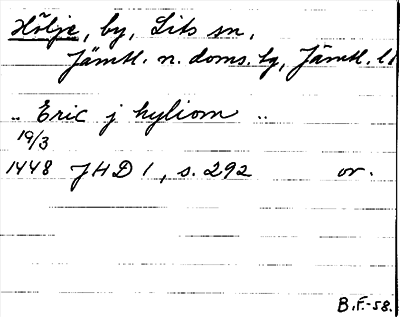 Hölje, by, Lits sn,
Jämtl. n. doms. tg, Jämtl. l
.. Eric j hyliom ..
19/3
1448 JHD 1, s. 292 or.
B.F.-58.